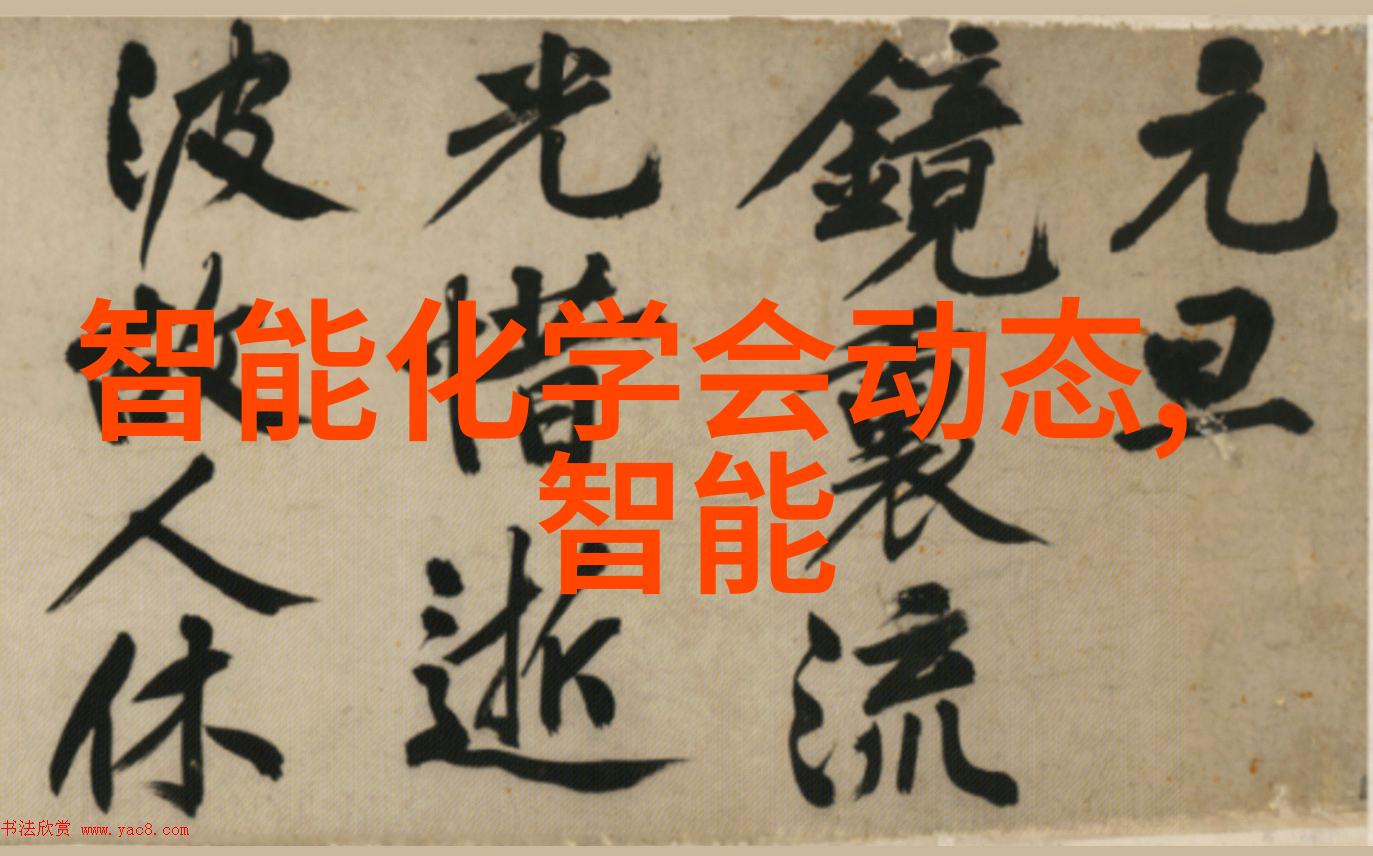 元旦
鏡裏流
光惜逝
波故人休
智能化学会动态,
智能
书法欣赏 www.yac8.com